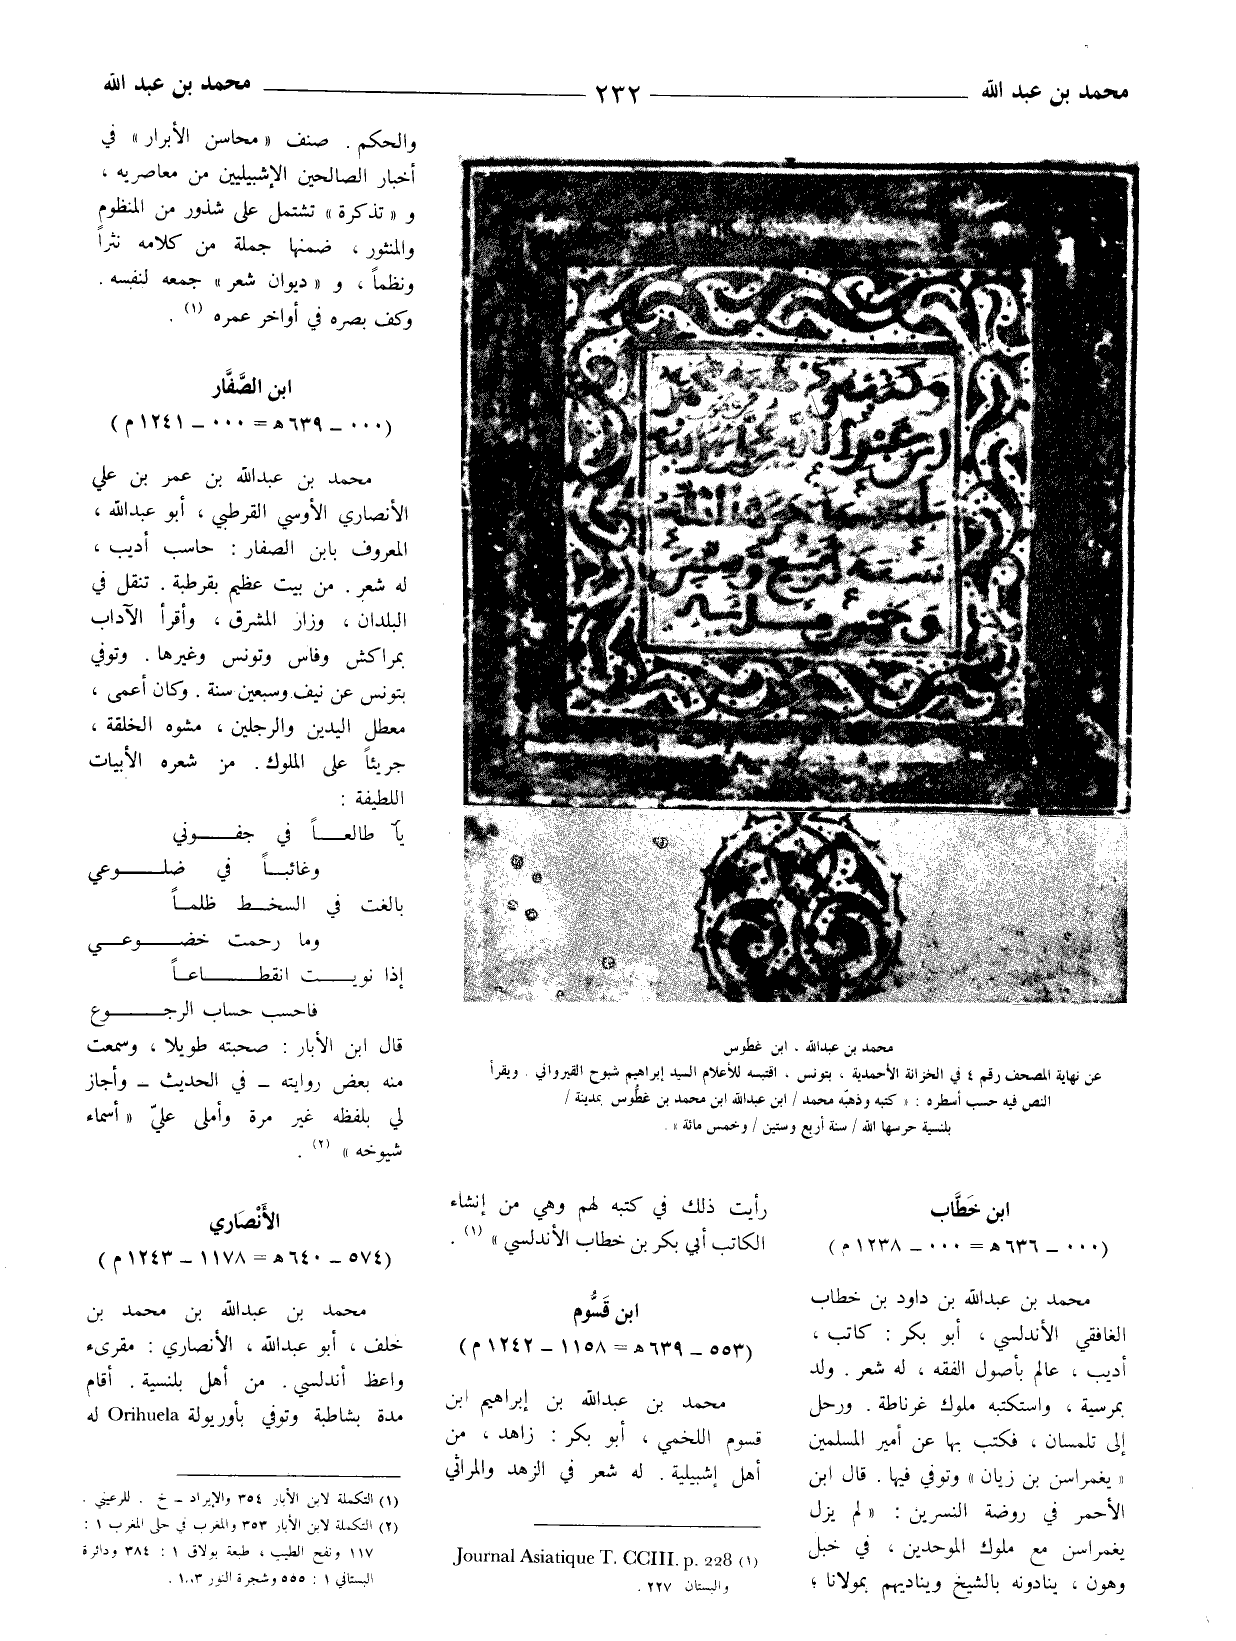 محمد بن عبد الله
٢٣٢
محمد بن عبد الله
وكتبه
محمد بن عبدالله ، ابن غطوس
عن نهاية المصحف رقم ٤ في الخزانة الأحمدية ، بتونس ، اقتبسه للأعلام السيد إبراهيم شبوح القيرواني . ويقرأ
النص فيه حسب أسطره : « كتبه وذهّبه محمد / ابن عبدالله ابن محمد بن غطّوس بمدينة /
بلنسية حرسها الله / سنة أربع وستين / وخمس مائة » .
ابن خَطَّاب
(٠٠٠ – ٦٣٦ هـ = ٠٠٠ – ١٢٣٨ م)
محمد بن عبدالله بن داود بن خطاب
الغافقي الأندلسي ، أبو بكر : كاتب ،
أديب ، عالم بأصول الفقه ، له شعر . ولد
بمرسية ، واستكتبه ملوك غرناطة . ورحل
إلى تلمسان ، فكتب بها عن أمير المسلمين
« يغمراسن بن زيان » وتوفي فيها . قال ابن
الأحمر في روضة النسرين : « لم يزل
يغمراسن مع ملوك الموحدين ، في خبل
وهون ، ينادونه بالشيخ ويناديهم بمولانا ؛
رأيت ذلك في كتبه لهم وهي من إنشاء
الكاتب أبي بكر بن خطاب الأندلسي » (١) .
ابن قَسُّوم
(٥٥٣ – ٦٣٩ هـ = ١١٥٨ – ١٢٤٢ م)
محمد بن عبدالله بن إبراهيم ابن
قسوم اللخمي ، أبو بكر : زاهد ، من
أهل إشبيلية . له شعر في الزهد والمراثي
(١) Journal Asiatique T. CCIII. p. 228
والبستان ٢٢٧ .
والحكم . صنف « محاسن الأبرار » في
أخبار الصالحين الإشبيليين من معاصريه ،
و « تذكرة » تشتمل على شذور من المنظوم
والمنثور ، ضمنها جملة من كلامه نثراً
ونظماً ، و « ديوان شعر » جمعه لنفسه .
وكف بصره في أواخر عمره (١) .
ابن الصَّفَّار
(٠٠٠ – ٦٣٩ هـ = ٠٠٠ – ١٢٤١ م)
محمد بن عبدالله بن عمر بن علي
الأنصاري الأوسي القرطبي ، أبو عبدالله ،
المعروف بابن الصفار : حاسب أديب ،
له شعر . من بيت عظيم بقرطبة . تنقل في
البلدان ، وزار المشرق ، وأقرأ الآداب
بمراكش وفاس وتونس وغيرها . وتوفي
بتونس عن نيف وسبعين سنة . وكان أعمى ،
معطل اليدين والرجلين ، مشوه الخلقة ،
جريئاً على الملوك . من شعره الأبيات
اللطيفة :
يا طالعاً في جفوني
وغائباً في ضلوعي
بالغت في السخط ظلماً
وما رحمت خضوعي
إذا نويت انقطاعاً
فاحسب حساب الرجوع
قال ابن الأبار : صحبته طويلا ، وسمعت
منه بعض روايته – في الحديث – وأجاز
لي بلفظه غير مرة وأملى عليّ « أسماء
شيوخه » (٢) .
الأَنْصَاري
(٥٧٤ – ٦٤٠ هـ = ١١٧٨ – ١٢٤٣ م)
محمد بن عبدالله بن محمد بن
خلف ، أبو عبدالله ، الأنصاري : مقرىء
واعظ أندلسي . من أهل بلنسية . أقام
مدة بشاطبة وتوفي بأوريولة Orihuela له
(١) التكملة لابن الأبار ٣٥٤ والإيراد – خ . للرعيني .
(٢) التكملة لابن الأبار ٣٥٣ والمغرب في حلى المغرب ١ :
١١٧ ونفح الطيب ، طبعة بولاق ١ : ٣٨٤ ودائرة
البستاني ١ : ٥٥٥ وشجرة النور ١٠٠٣ .